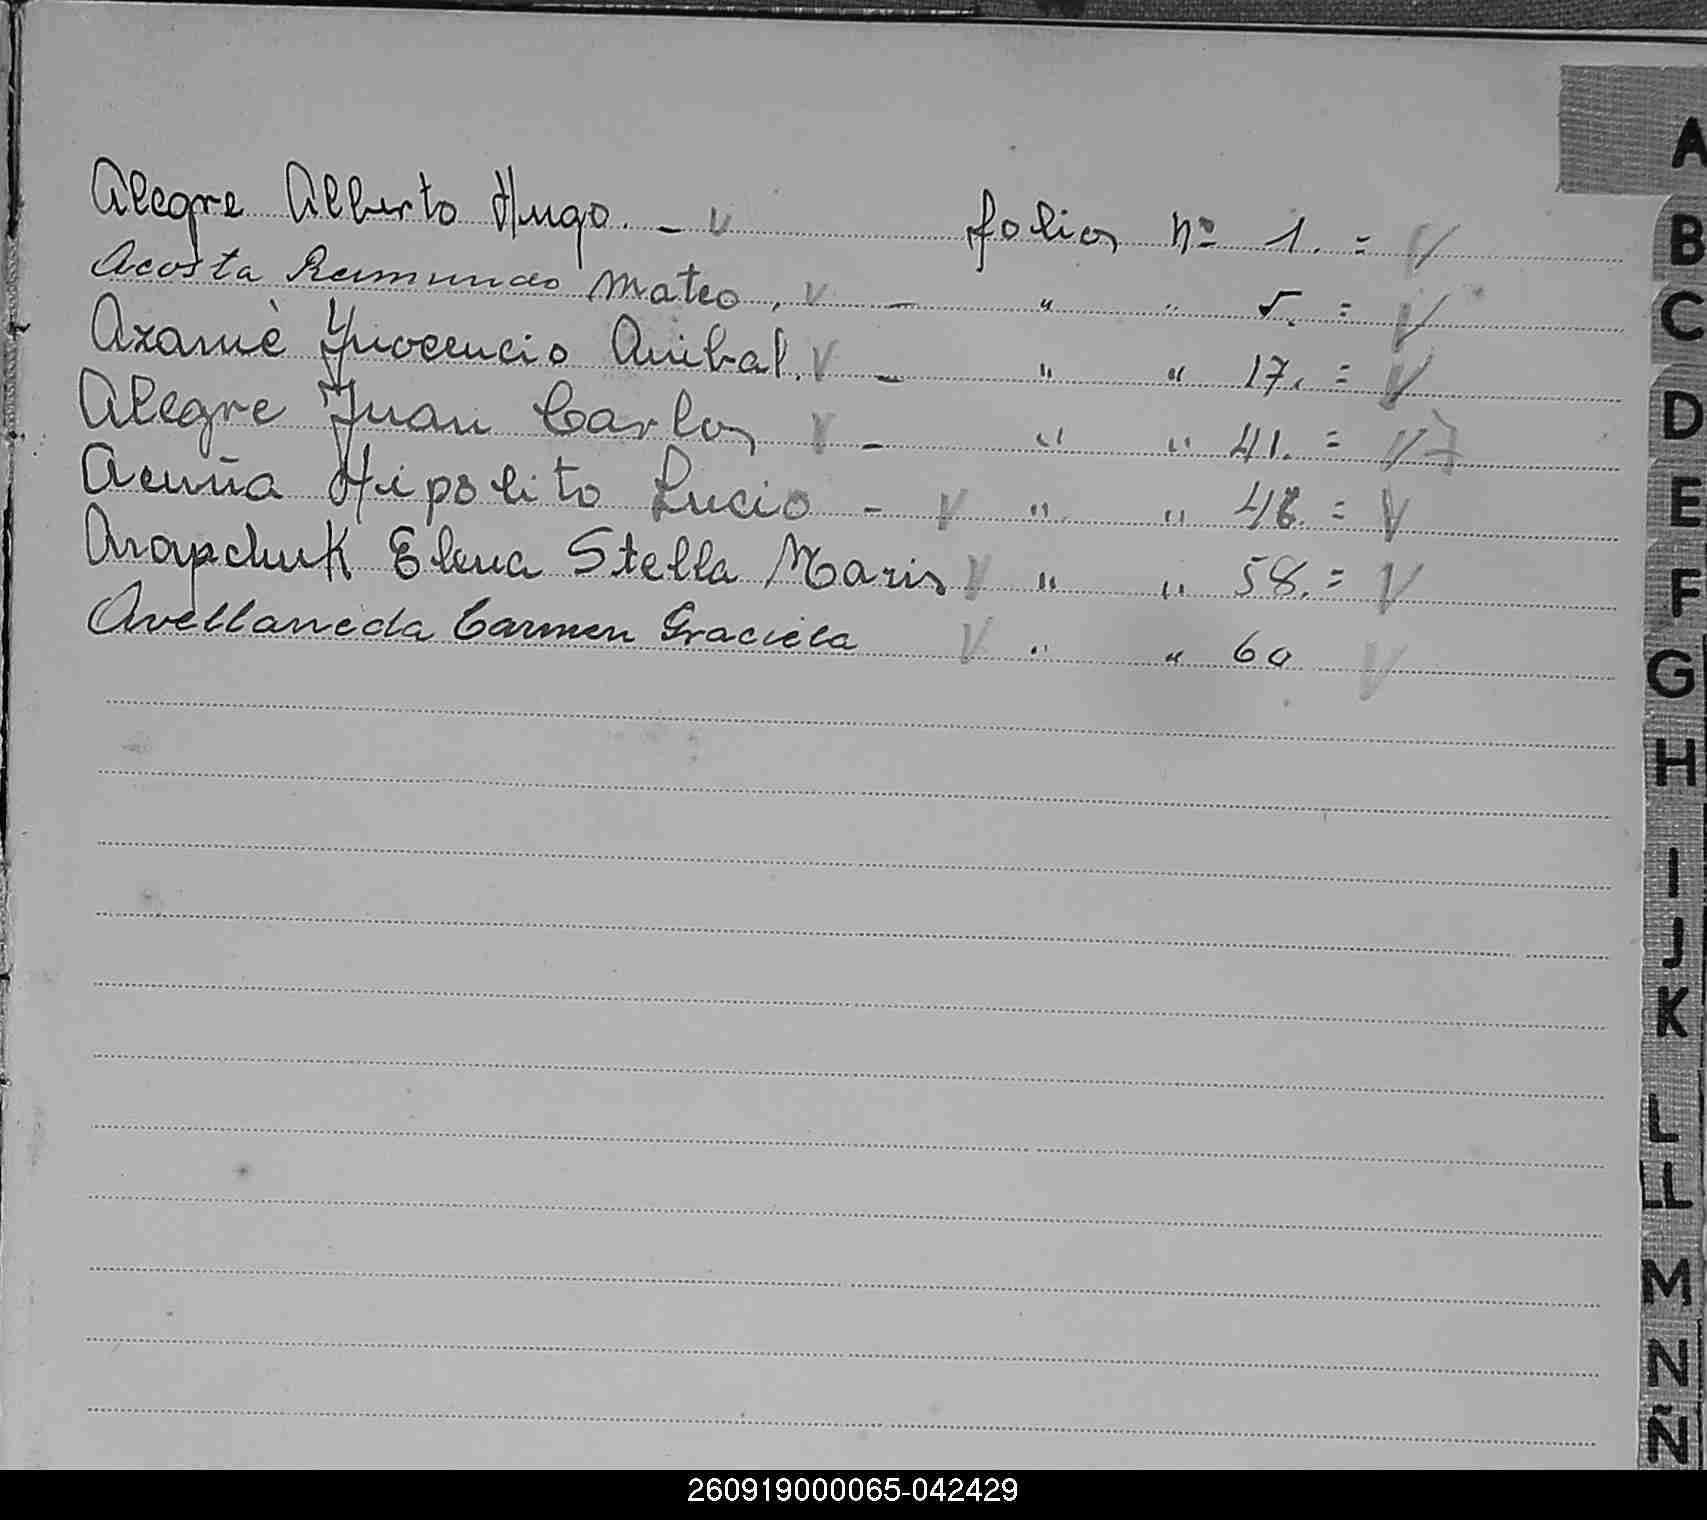 Alegre Alberto Hugo. - V folios Nº 1. = V
Acosta Raimundo Mateo. V - " " 5. = V
Azamé Ynocencio Anibal. V - " " 17. = V
Alegre Juan Carlos V - " " 41. = V
Acuña Hipolito Lucio - V " " 48. = V
Arapchuk Elena Stella Maris V " " 58. = V
Avellaneda Carmen Graciela V " " 60 V
A
B
C
D
E
F
G
H
I
J
K
L
LL
M
N
Ñ
260919000065-042429